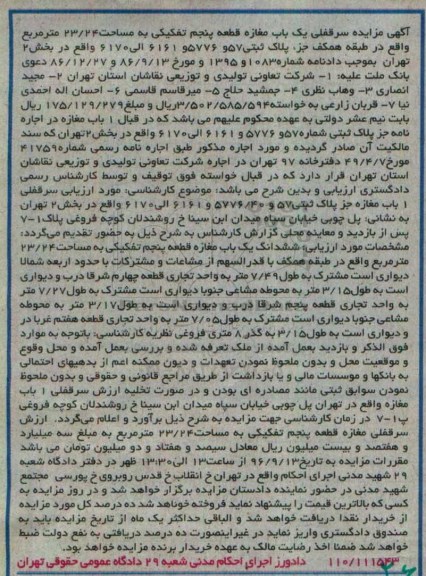 آگهی مزایده سرقفلی یک باب مغازه قطعه پنجم تفکیکی به مساحت۲۳/۲۴ مترمربع
واقع در طبقه همکف جز، پلاک ثبتی۵۷و ۵۷۷۶و ۶۱۶۱ الی۶۱۷۰ واقع در بخش۲
تهران بموجب دادنامه شماره۱۰۸۳و ۱۳۹۵ و مورخ ۸۶/۹/۱۳ و ۸۶/۱۲/۲۷ دعوی
بانک ملت علیه: ۱- شرکت تعاونی تولیدی و توزیعی نقاشان استان تهران ۲- مجید
انصاری ۳- وهاب نظری ۴- جمشید حلاج ۵- میرقاسم قاسمی ۶- احسان اله احمدی
نیا ۷- قربان زارعی به خواسته۳/۵۰۲/۵۸۵/۵۹۴ریال و مبلغ۱۷۵/۱۲۹/۲۷۹ ریال
بابت نیم عشر دولتی به عهده محکوم علیهم می باشد که در قبال ۱ باب مغازه در اجاره
نامه جز پلاک ثبتی شماره۵۷و ۵۷۷۶ و ۶۱۶۱ الی۶۱۷۰ واقع در بخش۲تهران که سند
مالکیت آن صادر گردیده و مورد اجاره مذکور طبق اجاره نامه رسمی شماره۴۱۷۵۹
مورخ۴۹/۴/۷ دفترخانه ۹۷ تهران در اجاره شرکت تعاونی تولیدی و توزیعی نقاشان
استان تهران قرار دارد که در قبال خواسته فوق توقیف و توسط کارشناس رسمی
دادگستری ارزیابی و بدین شرح می باشد: موضوع کارشناسی: مورد ارزیابی سرقفلی
۱ باب مغازه جز پلاک ثبتی۵۷و ۵۷۷۶/۴۰ و ۶۱۶۱ الی۶۱۷۰ واقع در بخش۲ تهران
به نشانی: پل چوبی خیابان سپاه میدان ابن سینا خ روشندلان کوچه فروغی پلاک۱-۷
پس از بازدید و معاینه محلی گزارش کارشناس به شرح ذیل به حضور تقدیم می‌گردد:
مشخصات مورد ارزیابی: ششدانگ یک باب مغازه قطعه پنجم تفکیکی به مساحت۲۳/۲۴
مترمربع واقع در طبقه همکف با قدرالسهم از مشاعات و مشترکات با حدود اربعه شمالا
دیواری است مشترک به طول۷/۴۹ متر به واحد تجاری قطعه چهارم شرقا درب و دیواری
است به طول۳/۱۵ متر به محوطه مشاعی جنوبا دیواری است مشترک به طول۷/۲۷ متر
به واحد تجاری قطعه پنجم شرقا درب و دیواری است به طول۳/۱۷ متر به محوطه
مشاعی جنوبا دیواری است مشترک به طول۷/۰۵ متر به واحد تجاری قطعه هفتم غربا در
و دیواری است به طول۳/۱۵ به گذر ۸ متری فروغی نظریه کارشناسی: باتوجه به موارد
فوق الذکر و بازدید بعمل آمده از ملک تعرفه شده و بررسی بعمل آمده و محل وقوع
و موقعیت محل و بدون ملحوظ نمودن تعهدات و دیون ممکنه اعم از بدهیهای احتمالی
به بانکها و موسسات مالی و یا بازداشت از طریق مراجع قانونی و حقوقی و بدون ملحوظ
نمودن سوابق ثبتی مانند مصادره ای بودن و در صورت تخلیه ارزش سرقفلی ۱ باب
مغازه واقع در تهران پل چوبی خیابان سپاه میدان ابن سینا خ روشندلان کوچه فروغی
پ۱-۷ در زمان کارشناسی جهت مزایده به شرح ذیل برآورد و اعلام می‌گردد. ارزش
سرقفلی مغازه قطعه پنجم تفکیکی به مساحت۲۳/۲۴ مترمربع به مبلغ سه میلیارد
و هفتصد و بیست میلیون ریال معادل سیصد و هفتاد و دو میلیون تومان می باشد
مقررات مزایده به تاریخ۹۶/۹/۱۳ از ساعت۱۳ الی۱۳:۳۰ ظهر در دفتر دادگاه شعبه
۲۹ شهید مدنی اجرای احکام واقع در تهران خ انقلاب خ قدس روبروی خ پورسی مجتمع
شهید مدنی در حضور نماینده دادستان مزایده برگزار خواهد شد و در روز مزایده به
کسی که بالاترین قیمت را پیشنهاد نماید فروخته خواهد شد ده درصد کل مورد مزایده
از خریدار نقدا دریافت خواهد شد و الباقی حداکثر یک ماه از تاریخ مزایده باید به
صندوق دادگستری واریز نماید در غیراینصورت ده درصد دریافتی به نفع دولت ضبط
خواهد شد ضمنا اخذ رضایت مالک به عهده خریدار برنده مزایده خواهد بود.
۱۱۰/۱۱۱۵۴۳ دادورز اجرای احکام مدنی شعبه ۲۹ دادگاه عمومی حقوقی تهران